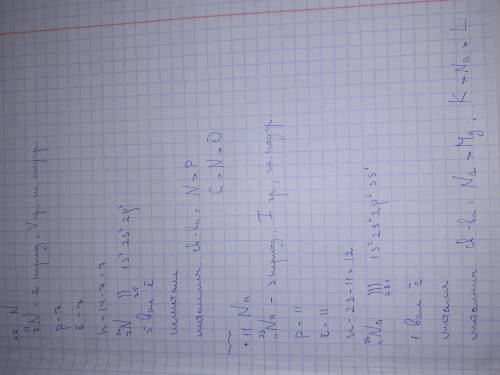 +7 N
¹⁴₇N - 2 период, V гр, гл. подгр.
p = 7
ē = 7
n = 14 - 7 = 7
¹⁴₇N )) 1s² 2s² 2p³
25
5 вал ē
неметалл
металлич. св-ва: N > P
C > N > O
+11 Na
²³₁₁Na - 3 период, I гр, гл. подгр.
p = 11
ē = 11
n = 23 - 11 = 12
²³₁₁Na ))) 1s² 2s² 2p⁶ 3s¹
281
1 вал ē
металл
металлич. св-ва: Na > Mg, K > Na > Li